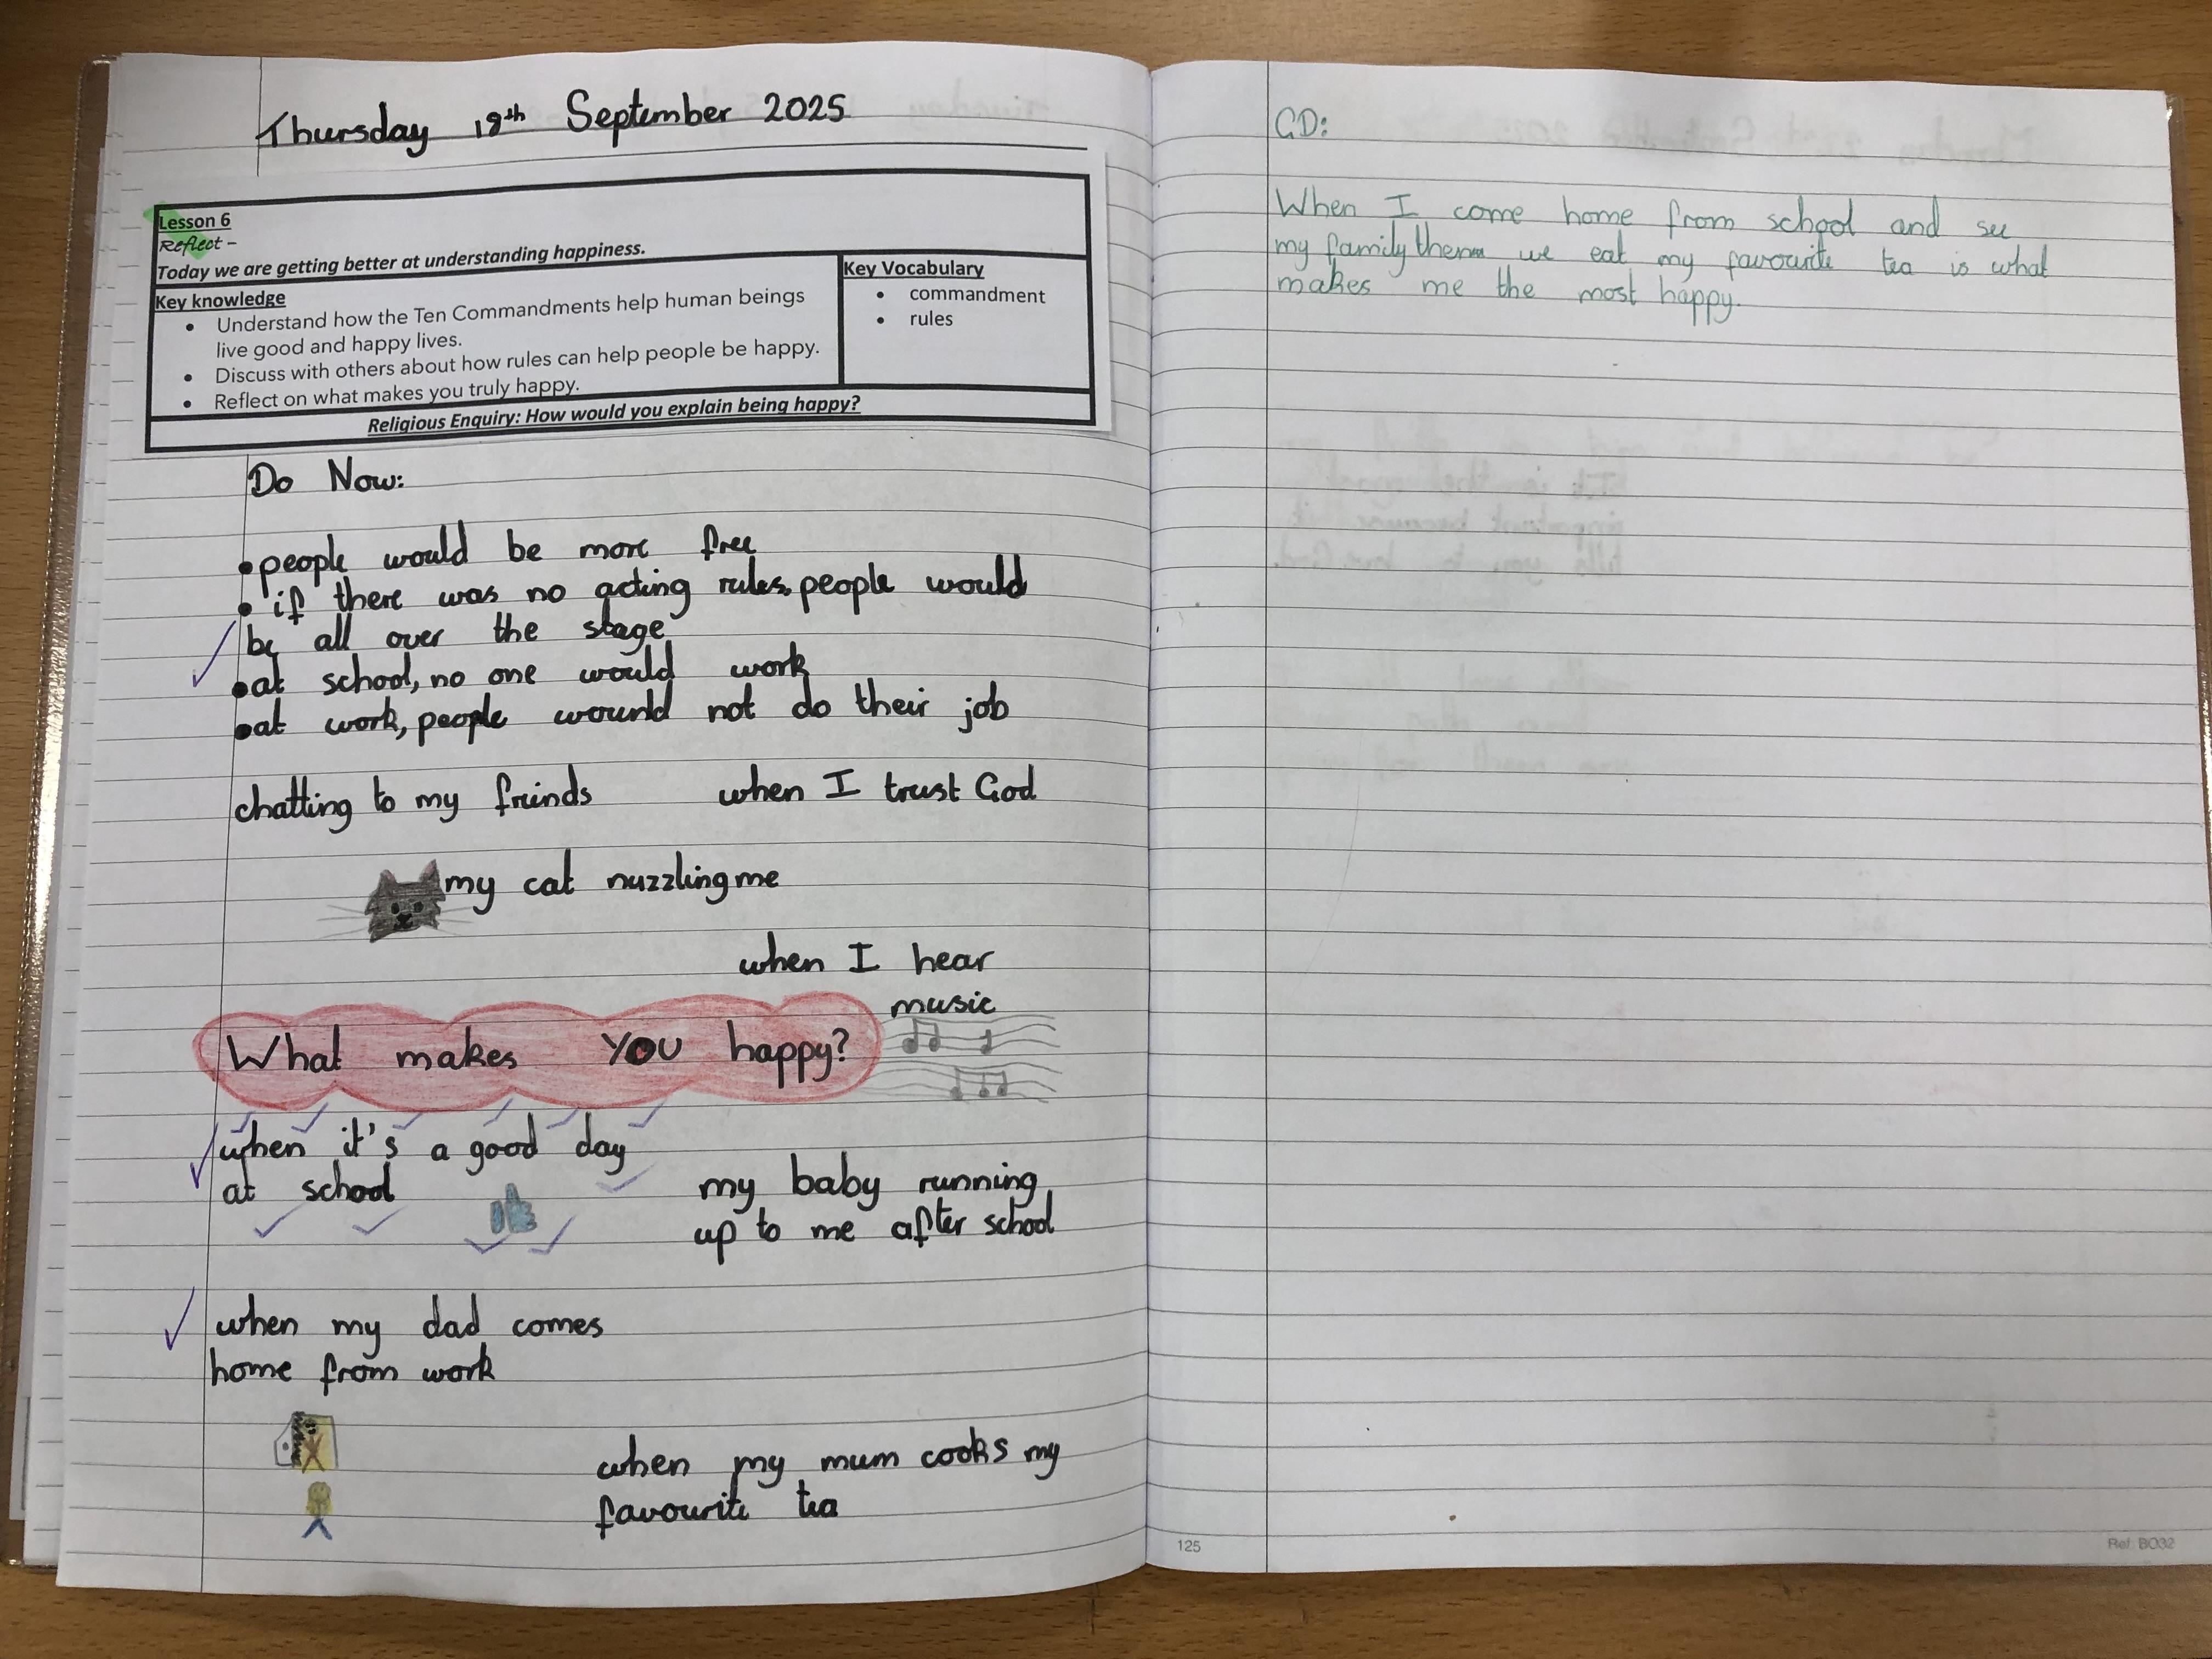 Thursday 18th September 2025
Lesson 6
Reflect -
Today we are getting better at understanding happiness.
Key knowledge
• Understand how the Ten Commandments help human beings
live good and happy lives.
• Discuss with others about how rules can help people be happy.
• Reflect on what makes you truly happy.
Key Vocabulary
• commandment
• rules
Religious Enquiry: How would you explain being happy?
Do Now:
• people would be more free
• if there was no acting rules, people would
be all over the stage
• at school, no one would work
• at work, people wounld not do their job
chatting to my freinds
when I trust God
my cat nuzzling me
when I hear
music
What makes YOU happy?
when it's a good day
at school
my baby running
up to me after school
when my dad comes
home from work
when my mum cooks my
favourite tea
GD:
When I come home from school and see
my family then we eat my favourite tea is what
makes me the most happy.
125
Ref: BO32